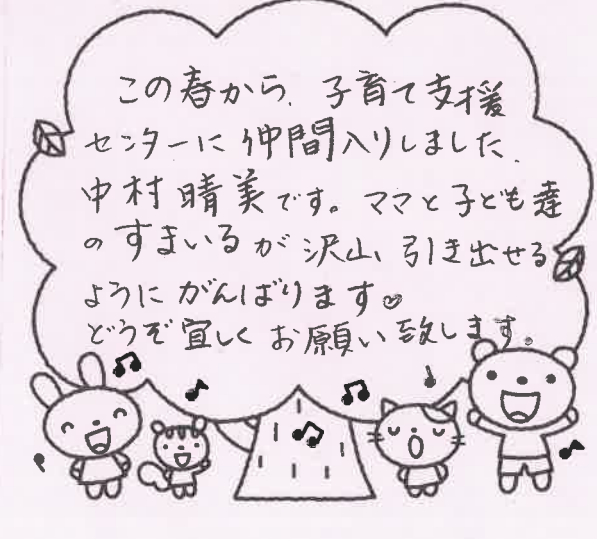 この春から、子育て支援
センターに仲間入りしました、
中村晴美です。ママと子ども達
のすまいるが沢山引き出せる
ようにがんばります♡
どうぞ宜しくお願い致します。